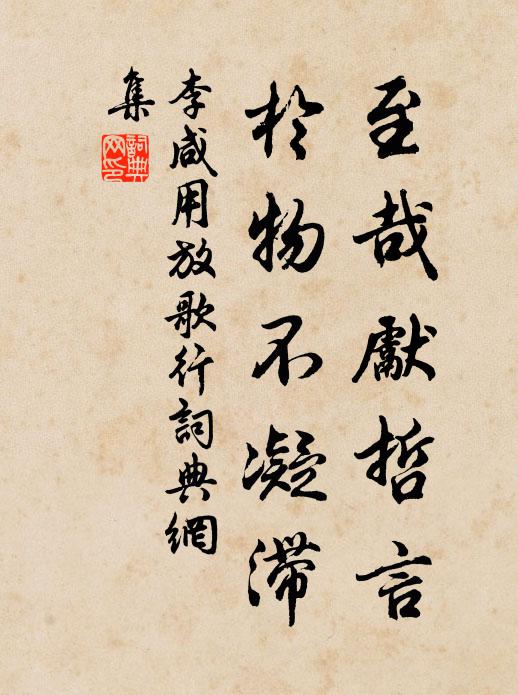 至哉獻哲言
於物不凝滯
李咸用放歌行詞典網
集
詞典
网印